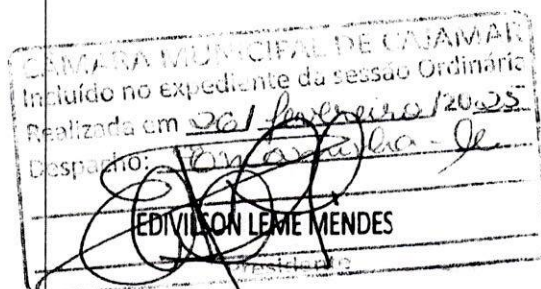 CÂMARA MUNICIPAL DE CAJAMAR
Incluído no expediente da sessão Ordinária
Realizada em / fevereiro /2025
Despacho: Encaminha-se
EDIVILSON LEME MENDES
Presidente